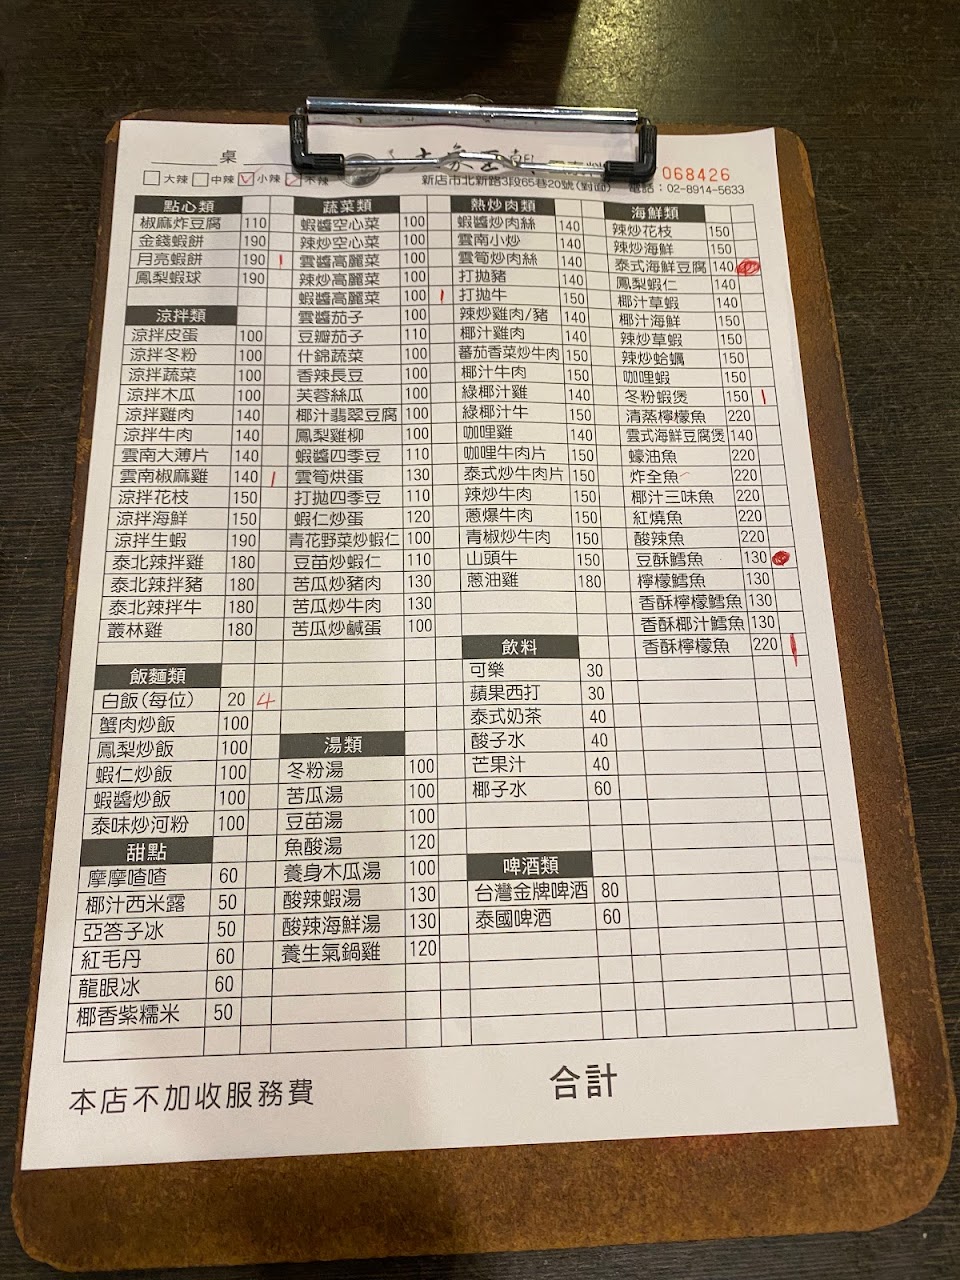 桌
068426
大辣 中辣 小辣 不辣
新店市北新路3段65巷20號(對面) 電話：02-8914-5633
點心類
椒麻炸豆腐 110
金錢蝦餅 190
月亮蝦餅 190 1
鳳梨蝦球 190
涼拌類
涼拌皮蛋 100
涼拌冬粉 100
涼拌蔬菜 100
涼拌木瓜 100
涼拌雞肉 140
涼拌牛肉 140
雲南大薄片 140
雲南椒麻雞 140 1
涼拌花枝 150
涼拌海鮮 150
涼拌生蝦 190
泰北辣拌雞 180
泰北辣拌豬 180
泰北辣拌牛 180
叢林雞 180
飯麵類
白飯(每位) 20 4
蟹肉炒飯 100
鳳梨炒飯 100
蝦仁炒飯 100
蝦醬炒飯 100
泰味炒河粉 100
甜點
摩摩喳喳 60
椰汁西米露 50
亞答子冰 50
紅毛丹 60
龍眼冰 60
椰香紫糯米 50
蔬菜類
蝦醬空心菜 100
辣炒空心菜 100
雲醬高麗菜 100
辣炒高麗菜 100
蝦醬高麗菜 100 1
雲醬茄子 100
豆瓣茄子 110
什錦蔬菜 100
香辣長豆 100
芙蓉絲瓜 100
椰汁翡翠豆腐 100
鳳梨雞柳 100
蝦醬四季豆 110
雲筍烘蛋 130
打拋四季豆 110
蝦仁炒蛋 120
青花野菜炒蝦仁 100
豆苗炒蝦仁 110
苦瓜炒豬肉 130
苦瓜炒牛肉 130
苦瓜炒鹹蛋 100
湯類
冬粉湯 100
苦瓜湯 100
豆苗湯 100
魚酸湯 120
養身木瓜湯 100
酸辣蝦湯 130
酸辣海鮮湯 130
養生氣鍋雞 120
熱炒肉類
蝦醬炒肉絲 140
雲南小炒 140
雲筍炒肉絲 140
打拋豬 140
打拋牛 150
辣炒雞肉/豬 140
椰汁雞肉 140
蕃茄香菜炒牛肉 150
椰汁牛肉 150
綠椰汁雞 140
綠椰汁牛 150
咖哩雞 140
咖哩牛肉片 150
泰式炒牛肉片 150
辣炒牛肉 150
蔥爆牛肉 150
青椒炒牛肉 150
山頭牛 150
蔥油雞 180
飲料
可樂 30
蘋果西打 30
泰式奶茶 40
酸子水 40
芒果汁 40
椰子水 60
啤酒類
台灣金牌啤酒 80
泰國啤酒 60
海鮮類
辣炒花枝 150
辣炒海鮮 150
泰式海鮮豆腐 140
鳳梨蝦仁 140
椰汁草蝦 150
椰汁海鮮 150
辣炒草蝦 150
辣炒蛤蠣 150
咖哩蝦 150
冬粉蝦煲 150 1
清蒸檸檬魚 220
雲式海鮮豆腐煲 140
蠔油魚 220
炸全魚 220
椰汁三味魚 220
紅燒魚 220
酸辣魚 220
豆酥鱈魚 130
檸檬鱈魚 130
香酥檸檬鱈魚 130
香酥椰汁鱈魚 130
香酥檸檬魚 220 1
本店不加收服務費
合計